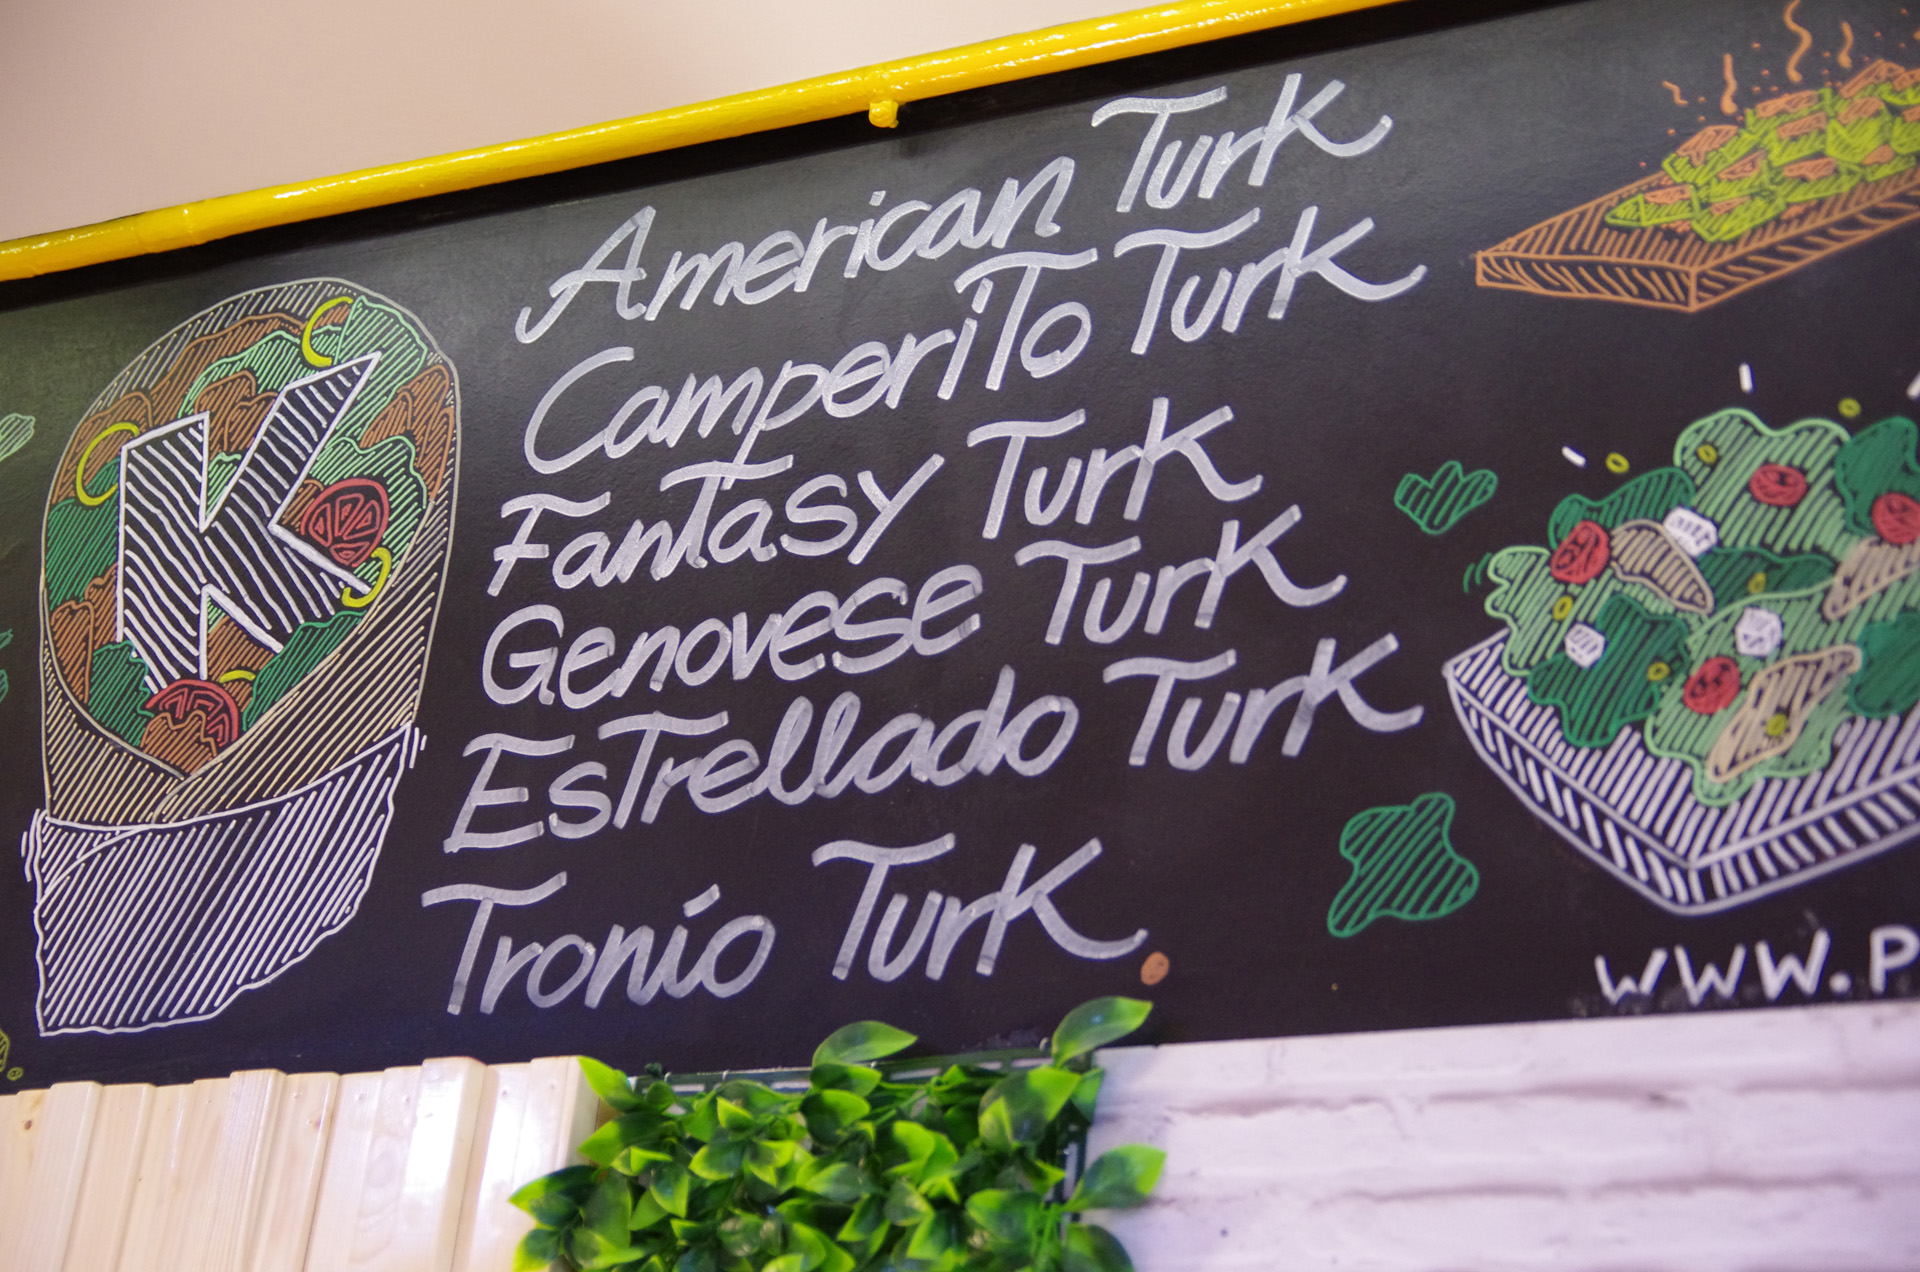 K
American Turk
Camperito Turk
Fantasy Turk
Genovese Turk
Estrellado Turk
Tronío Turk
www.P